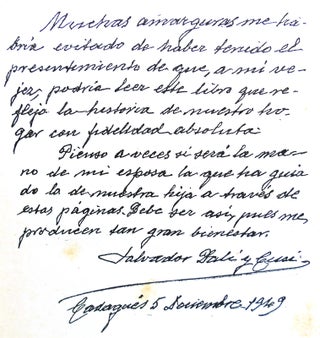 Muchas amarguras me ha-
bría evitado de haber tenido el
presentimiento de que, a mi ve-
jez, podría leer este libro que re-
fleja la historia de nuestro ho-
gar con fidelidad absoluta.
Pienso a veces si será la ma-
no de mi esposa la que ha guia
do la de nuestra hija a través de
estas páginas. Debe ser así, pues me
producen tan gran bienestar.
Salvador Dalí y Cusí.
Cadaqués 5 Diciembre 1949